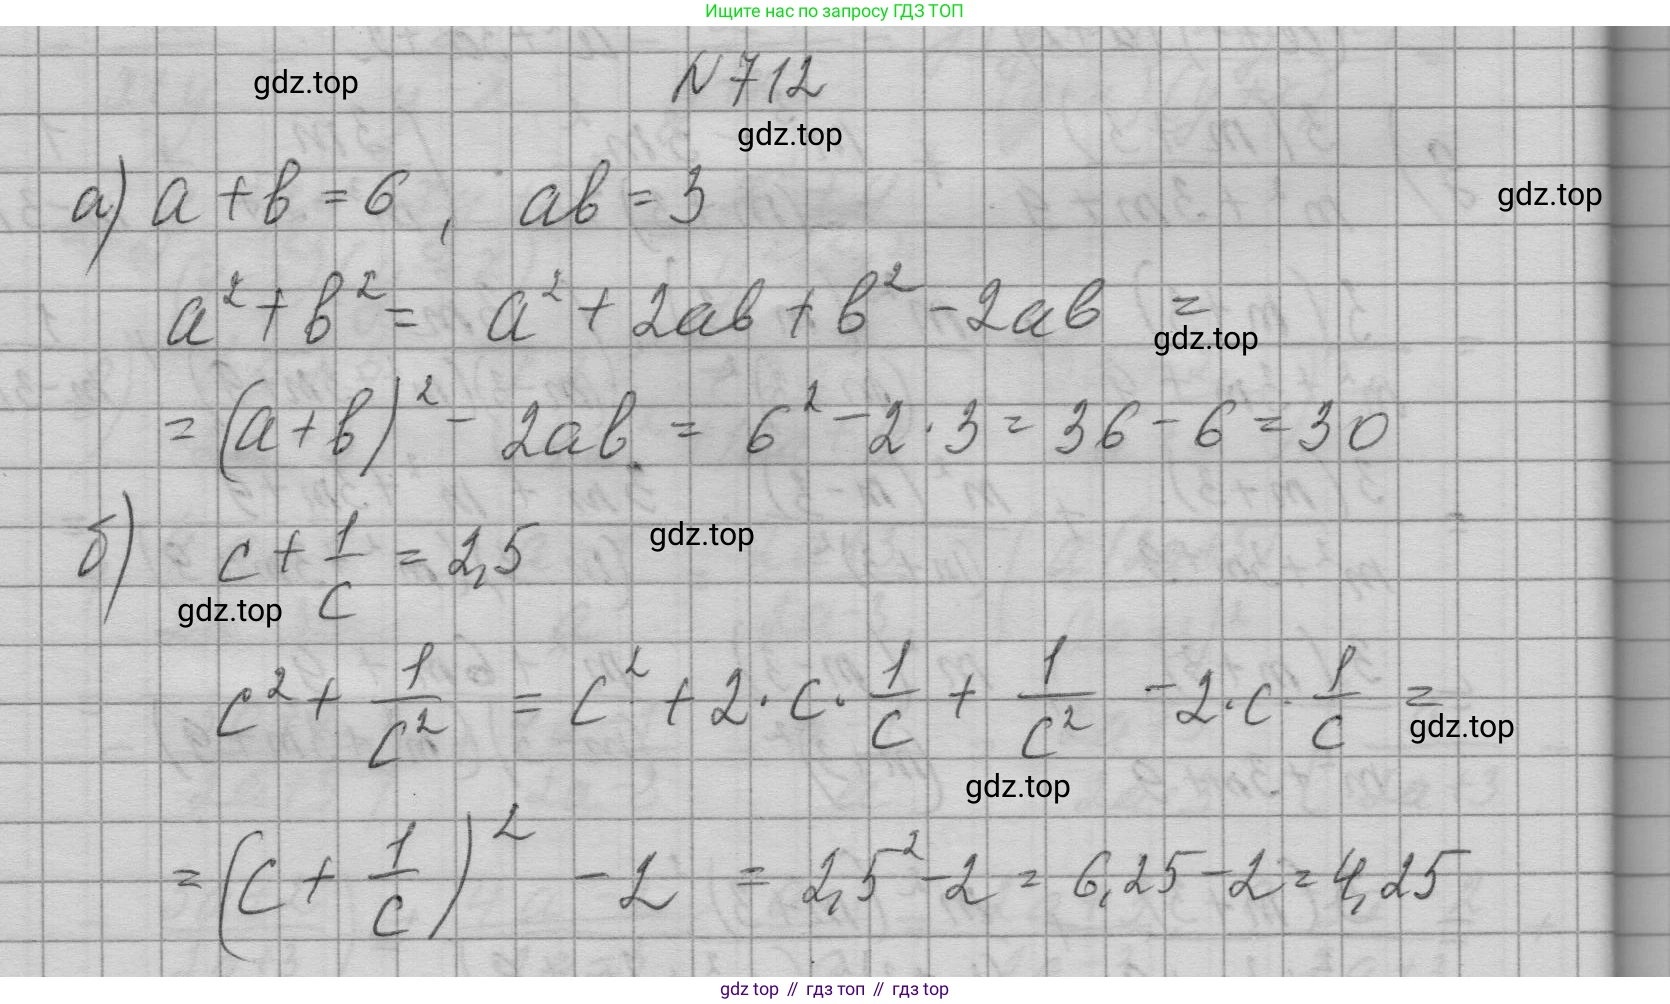 Ищите нас по запросу ГДЗ ТОП
gdz.top
N 712
gdz.top
а) a + b = 6, ab = 3
gdz.top
a² + b² = a² + 2ab + b² - 2ab =
gdz.top
= (a + b)² - 2ab = 6² - 2 · 3 = 36 - 6 = 30
б) c + 1/c = 2,5
gdz.top
gdz.top
c² + 1/c² = c² + 2 · c · 1/c + 1/c² - 2 · c · 1/c =
gdz.top
gdz.top
= (c + 1/c)² - 2 = 2,5² - 2 = 6,25 - 2 = 4,25
gdz top // гдз топ // гдз top